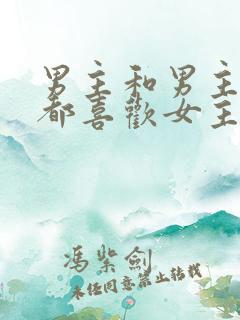 男主和男主
都喜歡女主
馮紫劍
未经同意禁止转载